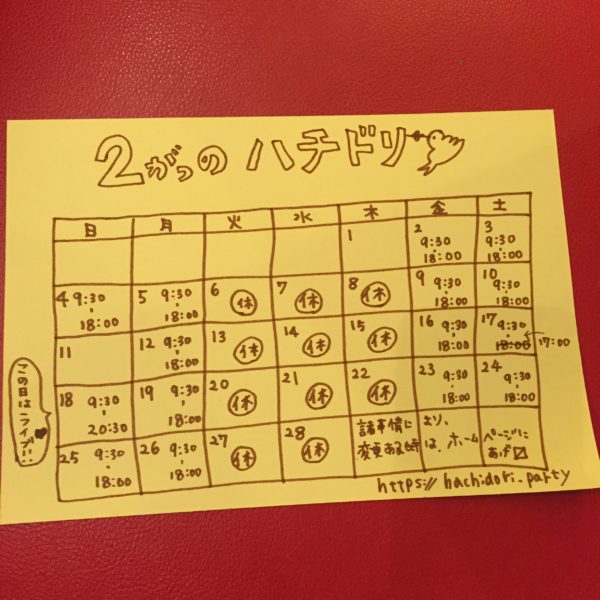 2がつの ハチドリ
日 月 火 水 木 金 土
1 2 9:30-18:00 3 9:30-18:00
4 9:30-18:00 5 9:30-18:00 6 休 7 休 8 休 9 9:30-18:00 10 9:30-18:00
11 12 9:30-18:00 13 休 14 休 15 休 16 9:30-18:00 17 9:30-18:00 17:00
18 9:30-20:30 19 9:30-18:00 20 休 21 休 22 休 23 9:30-18:00 24 9:30-18:00
この日はライブ!!
25 9:30-18:00 26 9:30-18:00 27 休 28 休
諸事情により、
変更ある時は、ホームページに
あげ〼
https://hachidori.party